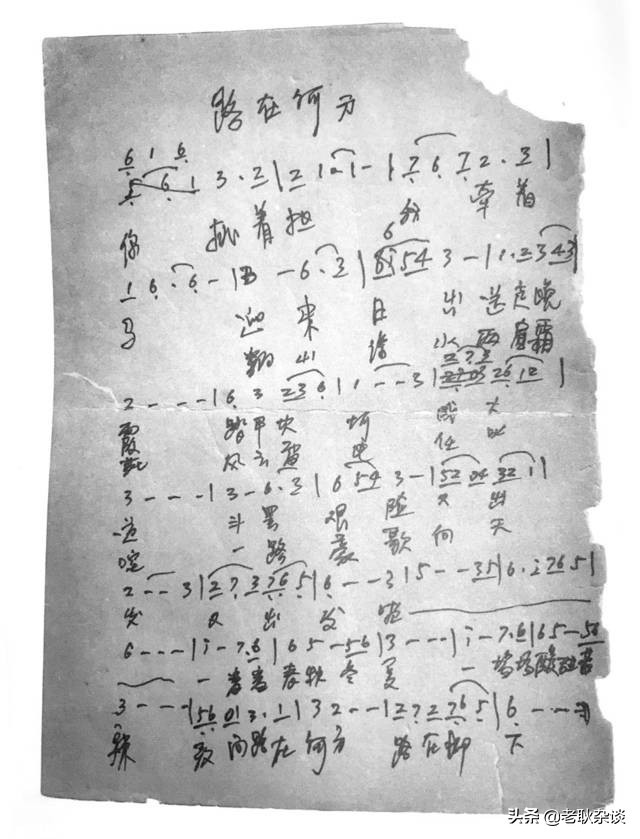 路在何方
6 1 6
5 6 1 3 · 2 | 2 1 · 1 - | 7 6 7 2 · 3 |
你 挑着担 我 牵着
1 6 · 6 - | 3 - 6 · 3 | 5 4 3 - | 1 · 2 3 4 3 |
马 迎来日出送走晚
翻山 涉水两肩霜
2 - - - | 6 3 2 3 6 | 1 · - - 3 | 2 6 1 2 |
霞 踏平坎坷成大
风云雷电任
3 - - - | 3 - 6 · 3 | 6 5 4 3 - | 5 2 0 4 3 2 1 |
道 斗罢艰险又出
一路豪歌向天
2 - - 3 | 2 7 3 7 6 5 | 6 - - 3 | 5 - - 3 5 | 6 · i 7 6 5 |
发 又出发 啦
6 - - - | i - 7 · 6 | 6 5 - 5 6 | 3 - - - | i - 7 · 6 | 6 5 - 5 6
一 春秋冬夏 一 场场酸甜苦
3 - - - | 5 6 0 1 3 · 1 | 3 2 - - | 2 7 2 7 6 5 | 6 - - -
辣 敢问路在何方 路在脚下
头条 @老耿杂谈